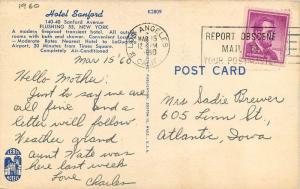 1960
Hotel Sanford
K3809
140-40 Sanford Avenue
FLUSHING 55, NEW YORK
A modern fireproof transient hotel. All outside
rooms with bath and shower. Convenient Location
— Moderate Rates. Nearest Hotel to LaGuardia
Airport. 20 Minutes from Times Square.
Completely Air-Conditioned
LOS ANGELES
MAR
PM
1960
CALIF
REPORT OBSCENE
MAIL TO
YOUR POSTMASTER
Mar 15 '60
POST CARD
Hello Mother:
Just to say we are
all fine and a
letter will follow
Weather grand.
Aunt Kate was
here last week
Love
Charles
Mrs Sadie Brewer
605 Linn St.,
Atlantic, Iowa